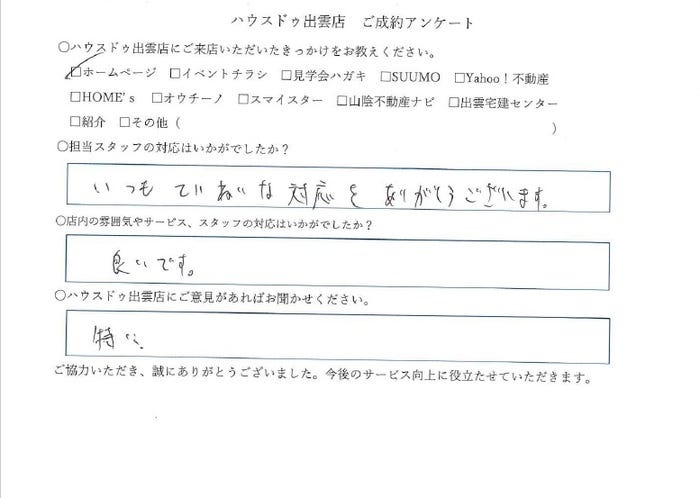 ハウスドゥ出雲店　ご成約アンケート
○ハウスドゥ出雲店にご来店いただいたきっかけをお教えください。
□ホームページ　□イベントチラシ　□見学会ハガキ　□SUUMO　□Yahoo！不動産
□HOME's　□オウチーノ　□スマイスター　□山陰不動産ナビ　□出雲宅建センター
□紹介　□その他（　　　　　　　　　　　　　　　　　　　　　　　　）
○担当スタッフの対応はいかがでしたか？
いつもていねいな対応をありがとうございます。
○店内の雰囲気やサービス、スタッフの対応はいかがでしたか？
良いです。
○ハウスドゥ出雲店にご意見があればお聞かせください。
特に、
ご協力いただき、誠にありがとうございました。今後のサービス向上に役立たせていただきます。